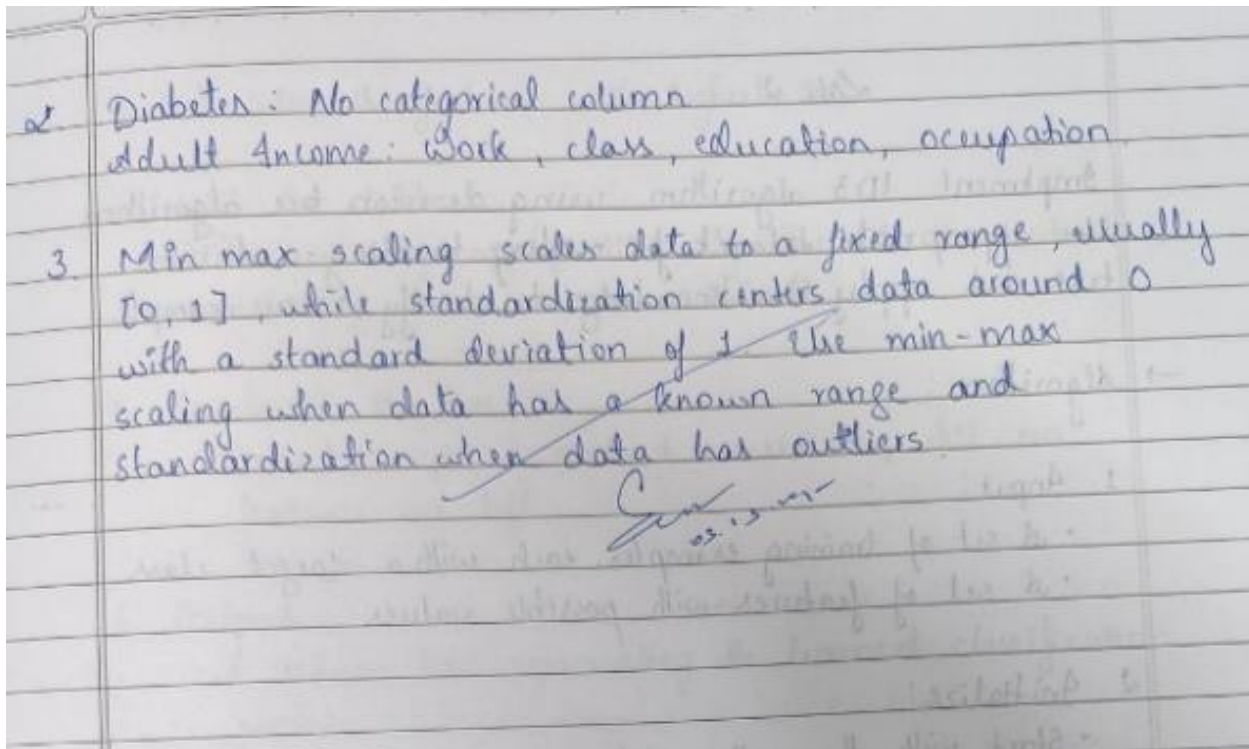 2. Diabetes: No categorical column
Adult Income: Work, class, education, occupation
3. Min max scaling scales data to a fixed range, usually
[0, 1], while standardization centers data around 0
with a standard deviation of 1. Use min-max
scaling when data has a known range and
standardization when data has outliers